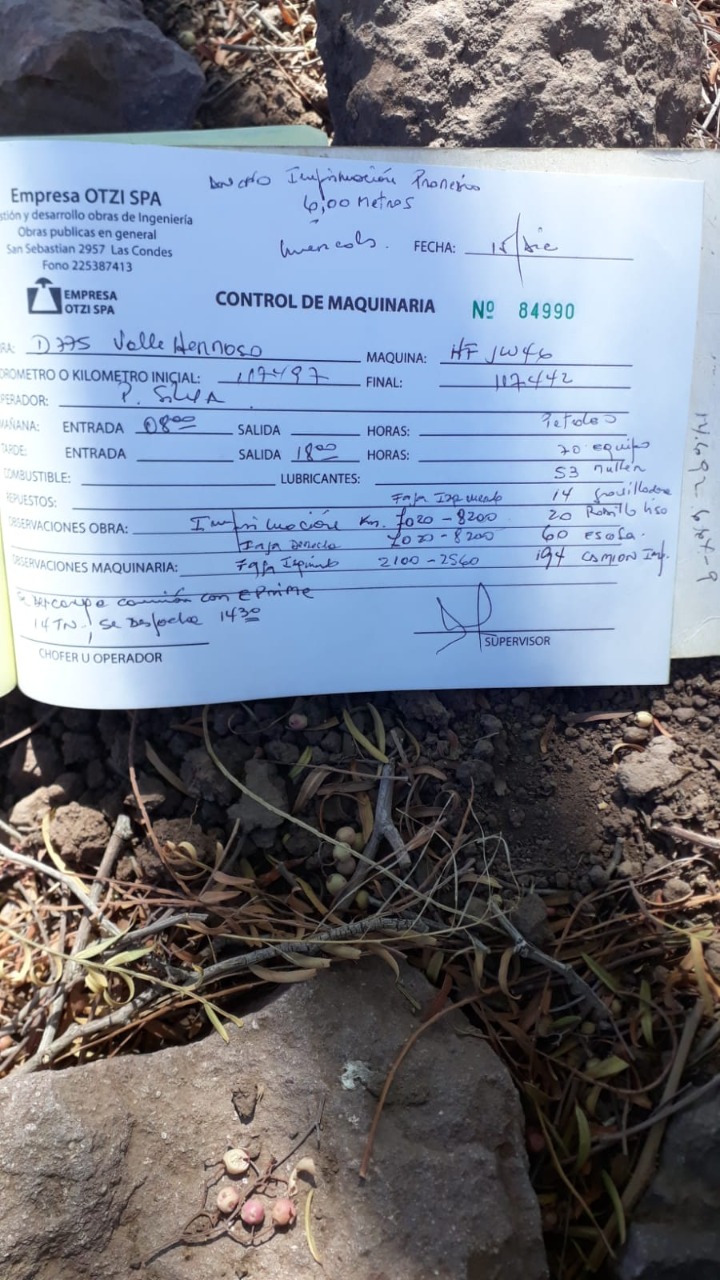 Ancho Imprimación Promedio
6,00 Metros
Empresa OTZI SPA
stión y desarrollo obras de Ingeniería
Obras publicas en general
San Sebastian 2957 Las Condes
Fono 225387413
EMPRESA
OTZI SPA
miercols. FECHA: 15/Dic
CONTROL DE MAQUINARIA Nº 84990
RA: D775 Valle Hermoso MAQUINA: HF JW46
DROMETRO O KILOMETRO INICIAL: 117497 FINAL: 117442
PERADOR: P. Silva
MAÑANA: ENTRADA 08:00 SALIDA HORAS: Petroleo
TARDE: ENTRADA SALIDA 18:00 HORAS: 70 equipo
COMBUSTIBLE: LUBRICANTES: 53 muller
REPUESTOS: Faja Izquierda 14 gravilladora
OBSERVACIONES OBRA: Imprimación Km. 7020-8200 20 Rodillo liso
Faja Derecha 7020-8200 60 escoba.
OBSERVACIONES MAQUINARIA: Faja Izquierda 2100-2560 194 camion Imp.
Se Descarga camión con EPRIME
14 TN. Se Despacha 14:30
CHOFER U OPERADOR
SUPERVISOR